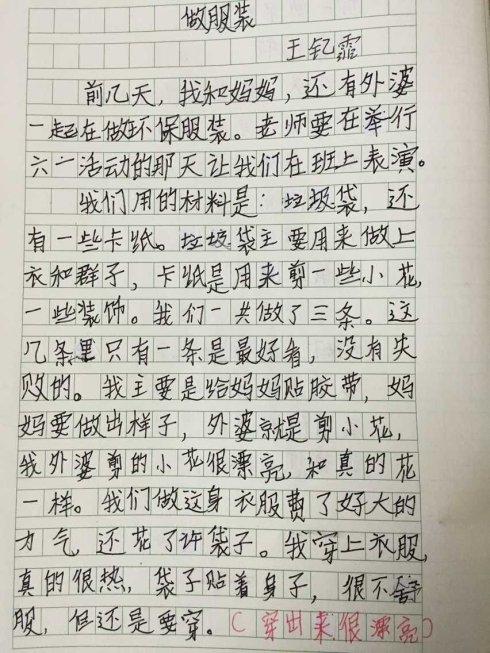 做服装
王钇霏
前几天，我和妈妈，还有外婆
一起在做环保服装。老师要在举行
六一活动的那天让我们在班上表演。
我们用的材料是：垃圾袋，还
有一些卡纸。垃圾袋主要用来做上
衣和群子，卡纸是用来剪一些小花，
一些装饰。我们一共做了三条。这
几条里只有一条是最好看，没有失
败的。我主要是给妈妈贴胶带，妈
妈要做出样子，外婆就是剪小花，
我外婆剪的小花很漂亮，和真的花
一样。我们做这身衣服费了好大的
力气，还花了许袋子。我穿上衣服，
真的很热，袋子贴着身子，很不舒
服，但还是要穿。（穿出来很漂亮）